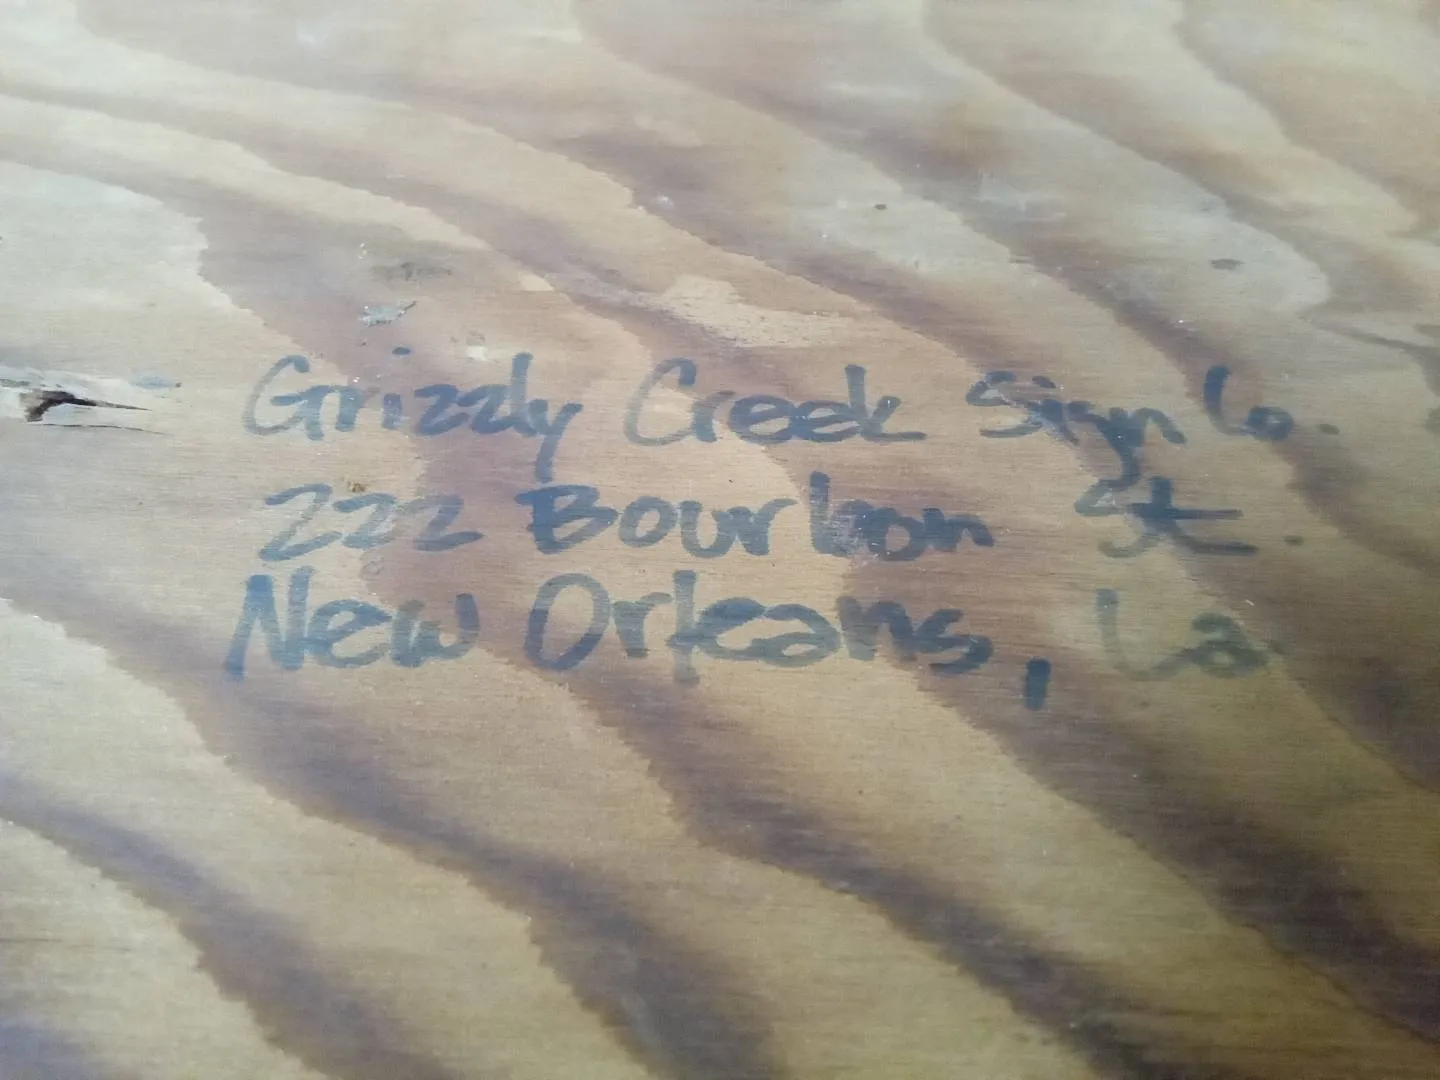 Grizzly Creek Sign Co.
222 Bourbon St.
New Orleans, La.